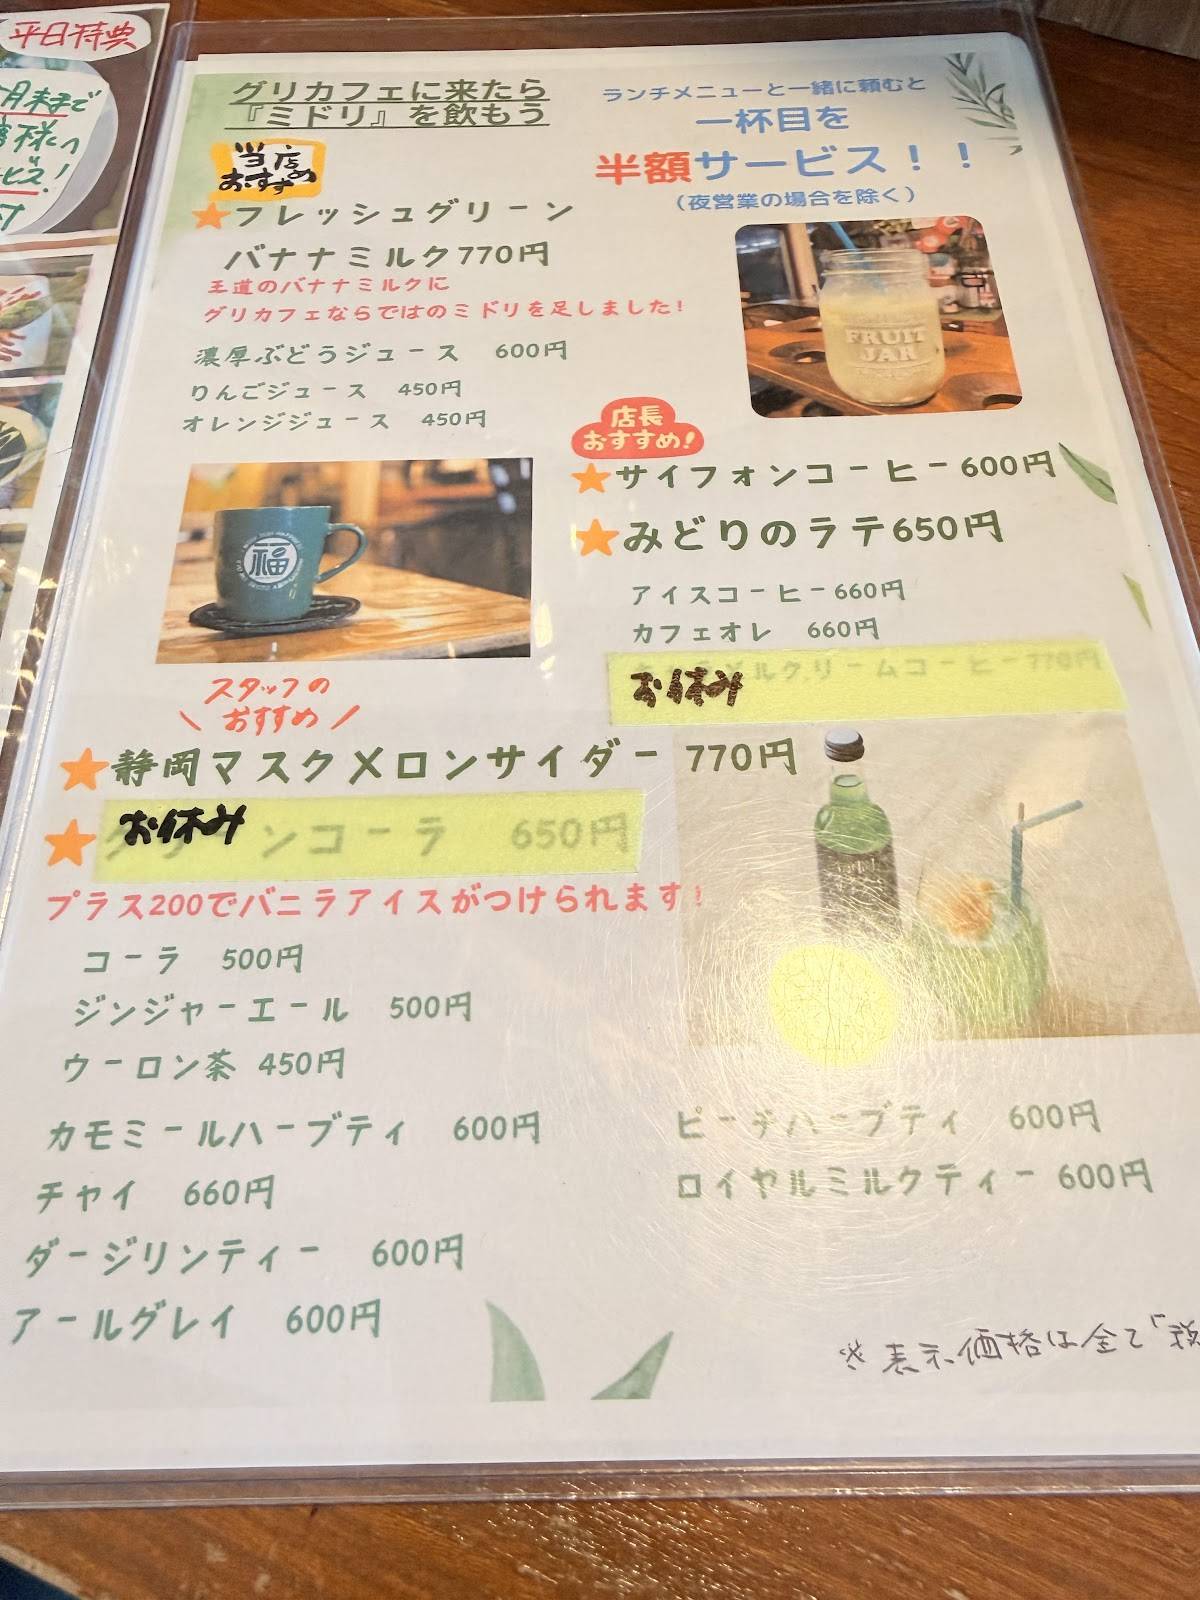 平日特典
月末まで
ビス!
グリカフェに来たら
『ミドリ』を飲もう
ランチメニューと一緒に頼むと
一杯目を
半額サービス！！
（夜営業の場合を除く）
当店
おすすめ
フレッシュグリーン
バナナミルク770円
王道のバナナミルクに
グリカフェならではのミドリを足しました!
濃厚ぶどうジュース 600円
りんごジュース 450円
オレンジジュース 450円
FRUIT
JAR
福
店長
おすすめ!
サイフォンコーヒー600円
みどりのラテ650円
アイスコーヒー660円
カフェオレ 660円
お休み
ルクリームコーヒー770円
スタッフの
おすすめ
静岡マスクメロンサイダー 770円
お休み
ンコーラ 650円
プラス200でバニラアイスがつけられます!
コーラ 500円
ジンジャーエール 500円
ウーロン茶 450円
カモミールハーブティ 600円
チャイ 660円
ダージリンティー 600円
アールグレイ 600円
ピーチハーブティ 600円
ロイヤルミルクティー 600円
※表示価格は全て「税